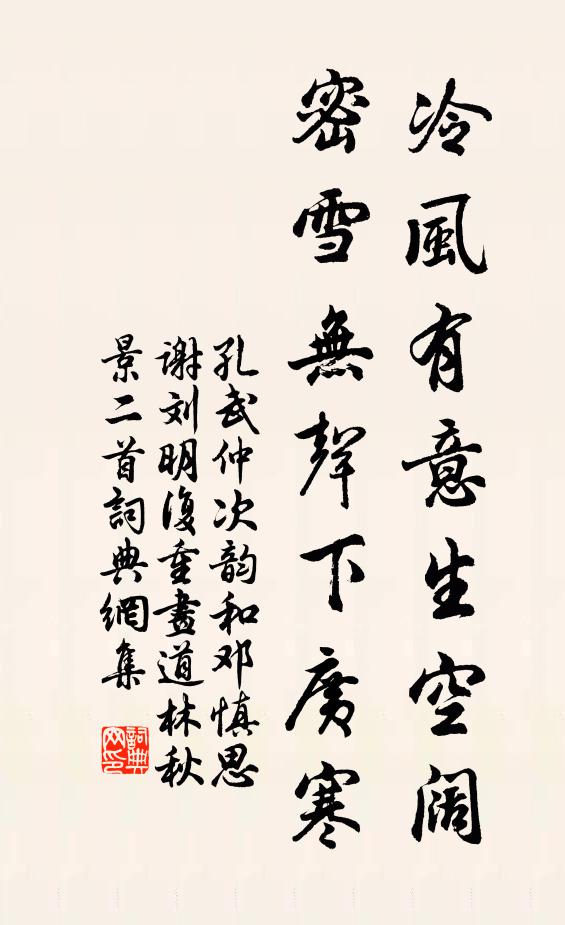 冷風有意生空阔
密雪無聲下廣寒
孔武仲次韵和邓慎思
谢刘明復重畫道林秋
景二首詞典網集
詞典
网印